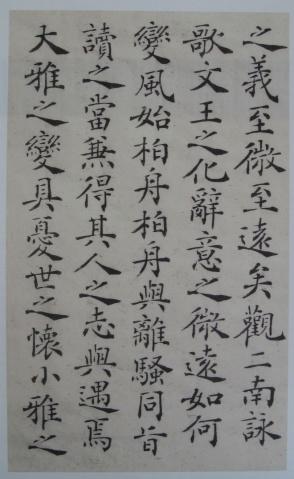 之義至微至遠矣觀二南詠
歌文王之化辭意之微遠如何
變風始柏舟柏舟與離騷同旨
讀之當兼得其人之志與遇焉
大雅之變具憂世之懷小雅之